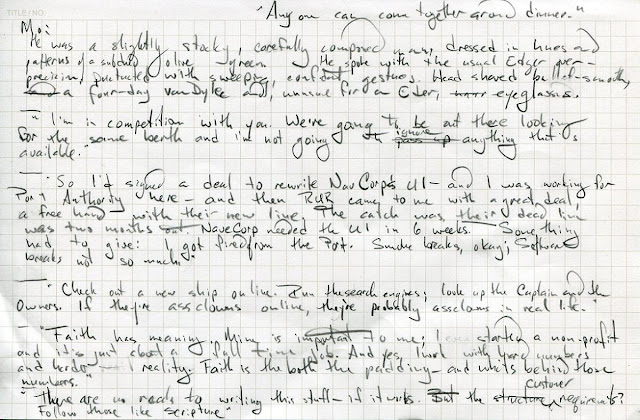 TITLE / NO.
"Anyone can come together around dinner."
Mo:
He was a slightly stocky, carefully composed man, dressed in hues and
patterns of a subdued olive green. He spoke with the usual Edger over-
precision, punctuated with sweeping, confident gestures. Head shaved bullet-smooth,
a four-day vandyke and, unusual for an Edger, eyeglasses.
"I'm in competition with you. We're going to be out there looking
for the same berth and I'm not going to ignore anything that's
available."
"So I'd signed a deal to rewrite NavCorp's UI - and I was working for
Port Authority here - and then RUR came to me with a great deal,
a free hand with their new line. The catch was, their dead line
was two months NaveCorp needed the UI in 6 weeks. Something
had to give: I got fired from the Port. Smoke breaks, okay; Software
breaks not so much."
"Check out a new ship online. Run the search engines; look up the Captain and the
Owners. If they're assclowns online, they're probably assclowns in real life."
"Faith has meaning. Mine is important to me; I started a non-profit
and it's just about a full time job. And yes, I work with hard numbers
and harder reality. Faith is the both the padding - and what's behind those
numbers."
"There are no roads to writing this stuff - if it works. But the structure customer requirements?
Follow those like scripture"